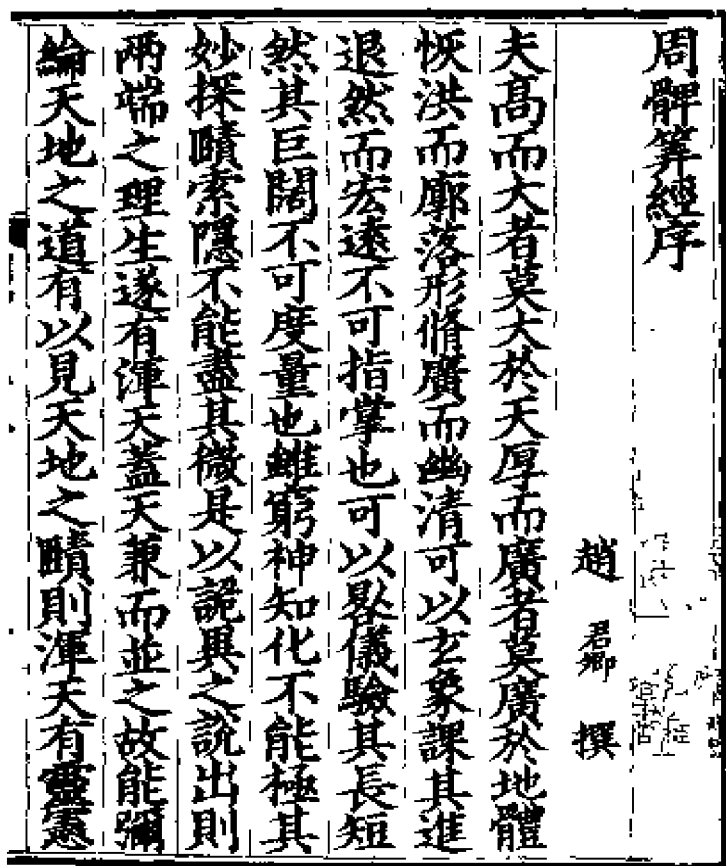 周髀筭經序
趙君卿撰
夫高而大者莫大於天厚而廣者莫廣於地體
恢洪而廓落形脩廣而幽清可以玄象課其進
退然而宏遠不可指掌也可以晷儀驗其長短
然其巨闊不可度量也雖窮神知化不能極其
妙探賾索隱不能盡其微是以詭異之說出則
兩端之理生遂有渾天蓋天兼而並之故能彌
綸天地之道有以見天地之賾則渾天有靈憲